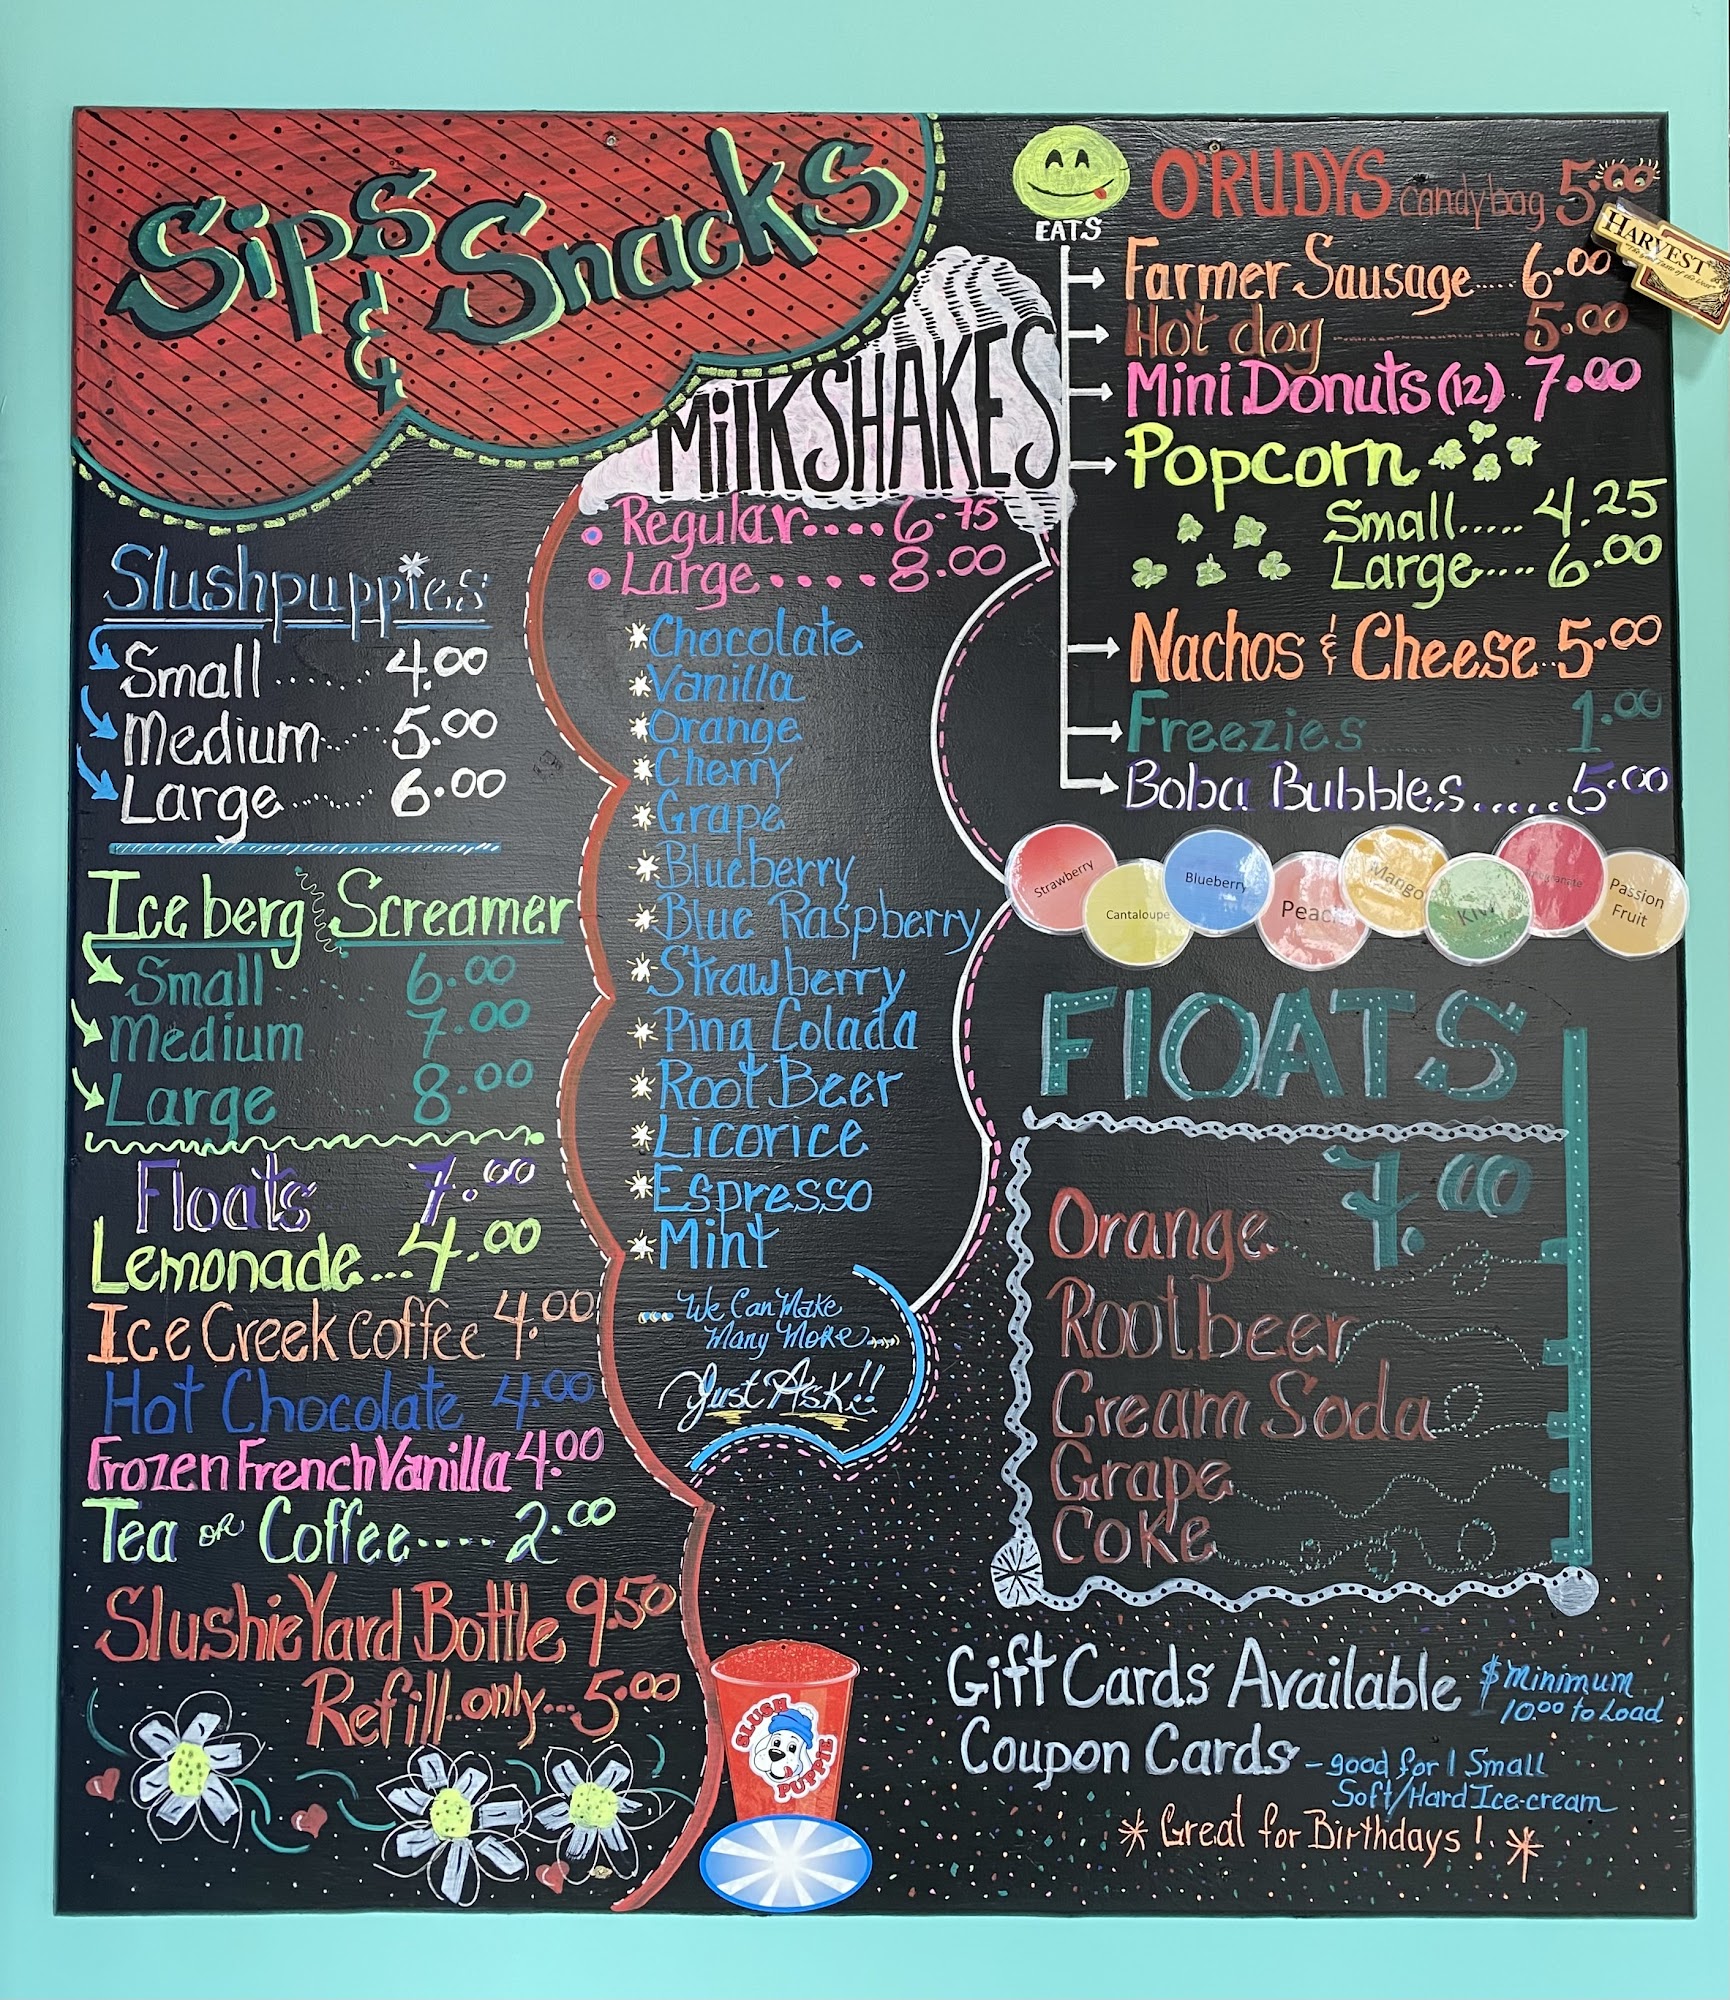 Sips & Snacks
Slushpuppies
Small ........ 4.00
Medium ...... 5.00
Large ........ 6.00
Ice berg Screamer
Small ..... 6.00
Medium ..... 7.00
Large ..... 8.00
Floats 7.00
Lemonade... 4.00
Ice Creek coffee 4.00
Hot Chocolate 4.00
Frozen French Vanilla 4.00
Tea OR Coffee.... 2.00
Slushie Yard Bottle 9.50
Refill..only... 5.00
MilkSHAKES
Regular.... 6.75
Large.... 8.00
Chocolate
Vanilla
Orange
Cherry
Grape
Blueberry
Blue Raspberry
Strawberry
Pina Colada
Root Beer
Licorice
Espresso
Mint
We Can Make
Many More....
Just Ask!!
SLUSH
PUPPIE
EATS
O'RUDYS candy bag 5.00
HARVEST
Farmer Sausage..... 6.00
Hot dog ........ 5.00
Mini Donuts (12).. 7.00
Popcorn
Small..... 4.25
Large.... 6.00
Nachos & Cheese.. 5.00
Freezies ........ 1.00
Boba Bubbles...... 5.00
Strawberry
Cantaloupe
Blueberry
Peach
Mango
Kiwi
Passion
Fruit
FlOATS
7.00
Orange
Rootbeer
Cream Soda
Grape
Coke
Gift Cards Available $ Minimum
10.00 to Load
Coupon Cards - good for 1 Small
Soft/Hard Ice-cream
* Great for Birthdays! *